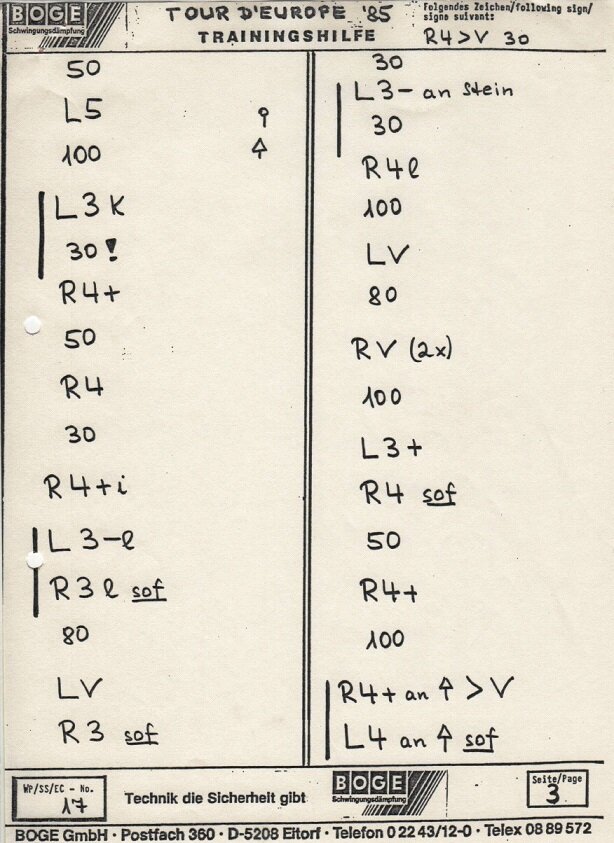 BOGE
Schwingungsdämpfung
TOUR D'EUROPE '85
TRAININGSHILFE
Folgendes Zeichen/following sign/
signe suivant:
R4>V 30
50
L5
100
L3K
30!
R4+
50
R4
30
R4+i
L3-l
R3l sof
80
LV
R3 sof
30
L3- an Stein
30
R4l
100
LV
80
RV (2x)
100
L3+
R4 sof
50
R4+
100
R4+ an ↑ > V
L4 an ↑ sof
WP/SS/EC - No.
17
Technik die Sicherheit gibt
BOGE
Schwingungsdämpfung
Seite/Page
3
BOGE GmbH · Postfach 360 · D-5208 Eitorf · Telefon 0 22 43/12-0 · Telex 08 89 572